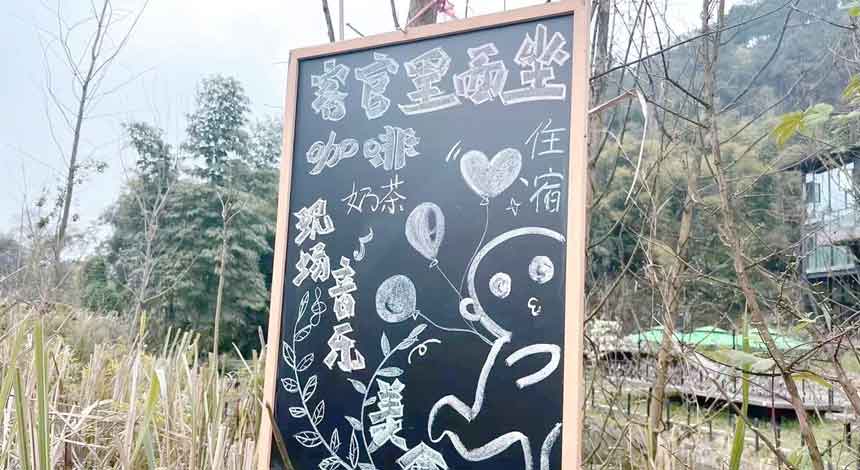 客官里面坐
咖啡
住宿
奶茶
现场音乐
美食